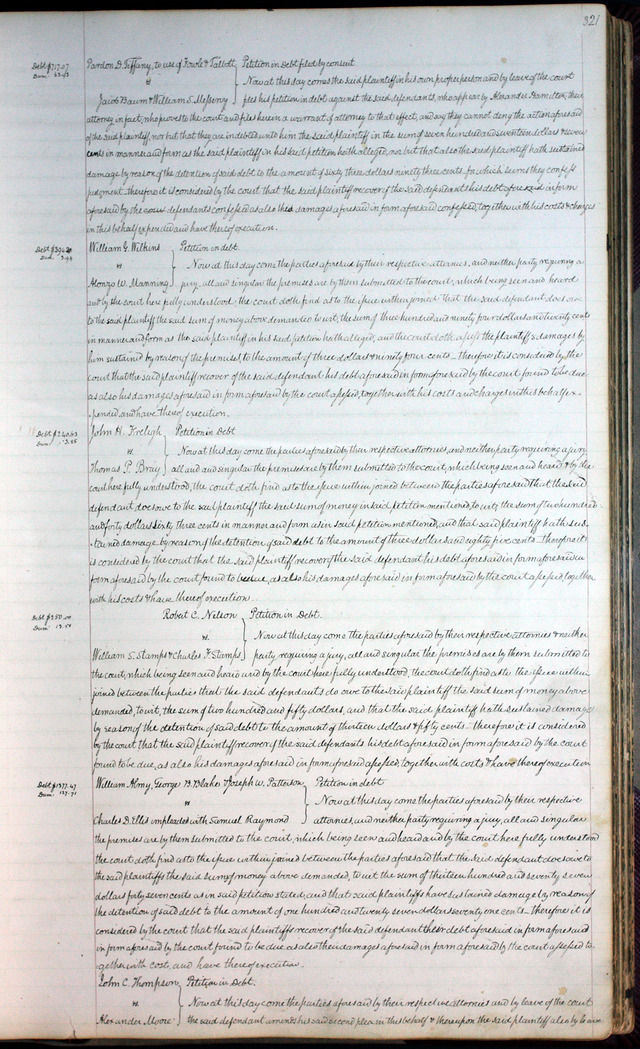 321
Debt $717.07 Pardon D. Tiffany, to use of Fowle & Talbott } Petition in Debt filed by consent
Dam: 63.93 vs } Now at this day comes the said plaintiff in his own proper person and by leave of the court
Jacob Baum & William S. Messeny } files his petition in debt against the said defendants, who appear by Alexander Hamilton, their
attorney in fact, who proves to the court and files herein a warrant of attorney to that effect, and say they cannot deny the action aforesaid
of the said plaintiff, nor but that they are indebted unto him the said plaintiff in the sum of seven hundred and seventeen dollars & seven
cents in manner and form as the said plaintiff in his said petition hath alleged, nor but that also the said plaintiff hath sustained
damage by reason of the detention of said debt to the amount of sixty three dollars ninety three cents, for which sums they confess
judgment. therefore it is considered by the court that the said plaintiff recover of the said defendants his debt aforesaid in form
aforesaid by the defendants confessed, as also the damages aforesaid in form aforesaid confessed, together with his costs & charges
in this behalf expended and have thereof execution.
Debt $394.20 William G. Wilkins } Petition in debt.
Dam: 3.94 vs } Now at this day come the parties aforesaid by their respective attornies, and neither party requiring a
Alonzo W. Manning } jury, all and singular the premises are by them submitted to the court, which being seen and heard
and by the court here fully understood, the court doth find as to the issue within joined that the said defendant does owe
to the said plaintiff the said sum of money above demanded to wit, the sum of three hundred and ninety four dollars and twenty cents
in manner and form as the said plaintiff in his said petition hath alleged, and the court doth assess the plaintiff's damages by
him sustained by reason of the premises to the amount of three dollars & ninety four cents – therefore it is considered by the
court that the said plaintiff recover of the said defendant his debt aforesaid in form aforesaid by the court found to be due
as also his damages aforesaid in form aforesaid by the court assessed, together with his costs and charges in this behalf ex-
-pended and have thereof execution.
Debt $240.63 John H. Freligh } Petition in Debt
Dam: 3.85 vs. } Now at this day come the parties aforesaid by their respective attornies, and neither party requiring a jury
Thomas P. Bray } all and singular the premises are by them submitted to the court, which being seen and heard & by the
court here fully understood, the court doth find as to the issue within joined between the parties aforesaid that the said
defendant does owe to the said plaintiff the said sum of money in said petition mentioned, to wit, the sum of two hundred
and forty dollars sixty three cents in manner and form as in said petition mentioned, and that said plaintiff hath sus-
-tained damage by reason of the detention of said debt to the amount of three dollars and eighty five cents – therefore it
is considered by the court that the said plaintiff recover of the said defendant his debt aforesaid in form aforesaid in
form aforesaid by the court found to be due, as also his damages aforesaid in form aforesaid by the court assessed, together
with his costs & have thereof execution.
Debt $250.00 Robert C. Nelson } Petition in Debt.
Dam: 13.50 vs. } Now at this day come the parties aforesaid by their respective attornies & neither
William S. Stamps & Charles F. Stamps } party requiring a jury, all and singular the premises are by them submitted to
the court, which being seen and heard and by the court here fully understood, the court doth find as to the issue within
joined between the parties that the said defendants do owe to the said plaintiff the said sum of money above
demanded, to wit, the sum of two hundred and fifty dollars, and that the said plaintiff hath sustained damage
by reason of the detention of said debt to the amount of thirteen dollars & fifty cents – therefore it is considered
by the court that the said plaintiff recover of the said defendants his debt aforesaid in form aforesaid by the court
found to be due, as also his damages aforesaid in form aforesaid assessed, together with costs & have thereof execution
Debt $1377.47 William Almy, George B. Blake & Joseph W. Patterson } Petition in debt
Dam: 127.71 vs } Now at this day come the parties aforesaid by their respective
Charles D. Ellis impleaded with Samuel Raymond } attornies, and neither party requiring a jury, all and singular
the premises are by them submitted to the court, which being seen and heard and by the court here fully understood
the court doth find as to the issue within joined between the parties aforesaid that the said defendant does owe to
the said plaintiffs the said sum of money above demanded, to wit the sum of thirteen hundred and seventy seven
dollars forty seven cents as in said petition stated, and that said plaintiffs have sustained damage by reason of
the detention of said debt to the amount of one hundred and twenty seven dollars seventy one cents – therefore it is
considered by the court that the said plaintiffs recover of the said defendant their debt aforesaid in form aforesaid
in form aforesaid by the court found to be due as also their damages aforesaid in form aforesaid by the court assessed to-
-gether with costs, and have thereof execution.
John C. Thompson } Petition in Debt.
vs } Now at this day come the parties aforesaid by their respective attornies and by leave of the court
Alexander Moore } the said defendant amends his said second plea in this behalf & thereupon the said plaintiff also by leave